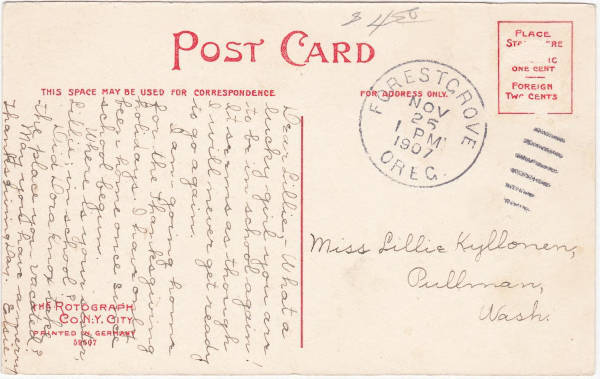 $ 4.50
POST CARD
PLACE
ONE CENT
FOREIGN
TWO CENTS
THIS SPACE MAY BE USED FOR CORRESPONDENCE
FOR ADDRESS ONLY.
FOREST GROVE
NOV
25
1 PM
1907
OREG.
Dear Lillie,- What a
lucky girl you are
to be in school again!
It seems as though
I will never get ready
to go again.
I am going home
for the Thanksgiving
holidays. I have only
been home once since
school began.
Where is your sister,
Lillie, in school?
Did Dora Knox take
the place you vacated?
May you have a merry
Thanksgiving Day.
Miss Lillie Kyllonen,
Pullman,
Wash.
THE ROTOGRAPH
CO. N.Y. CITY
PRINTED IN GERMANY
59607